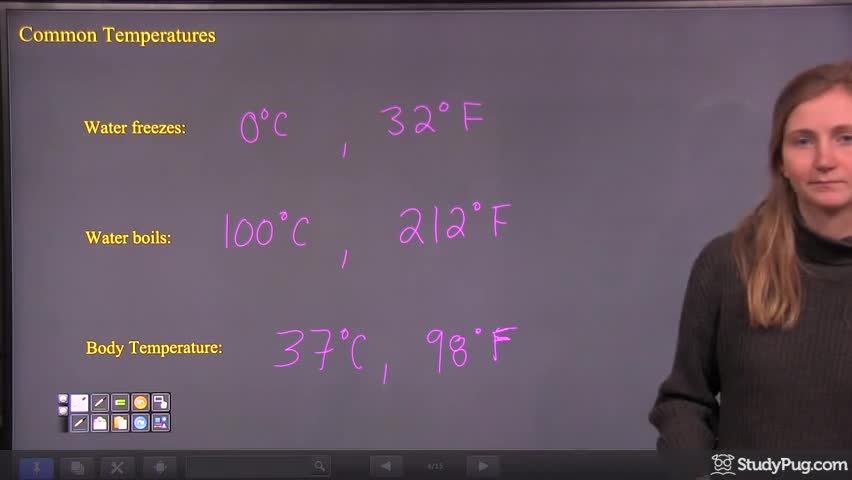 Common Temperatures
Water freezes: 0°C , 32°F
Water boils: 100°C , 212°F
Body Temperature: 37°C , 98°F
4/15
StudyPug.com